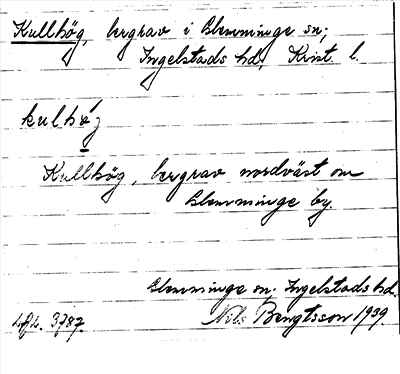 Kullhög, lergrav i Glemminge sn;
Ingelstads hd, Krist. l.
kulhǿg
Kullhög, lergrav nordväst om
Glemminge by
Glemminge sn. Ingelstads hd.
3787 Nils Bengtsson 1939.